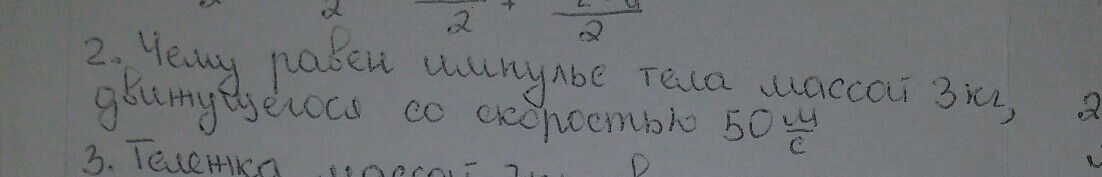 2 2 + 2
2. Чему равен импульс тела массой 3 кг,
движущегося со скоростью 50 м/с
2
3. Тележка массой